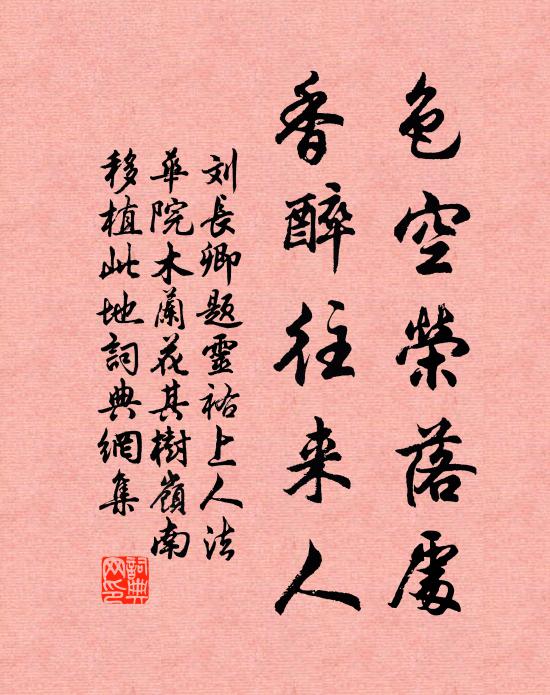 色空榮落處
香醉往来人
刘長卿題靈祐上人法
華院木蘭花其樹嶺南
移植此地詞典網集
詞典
网印